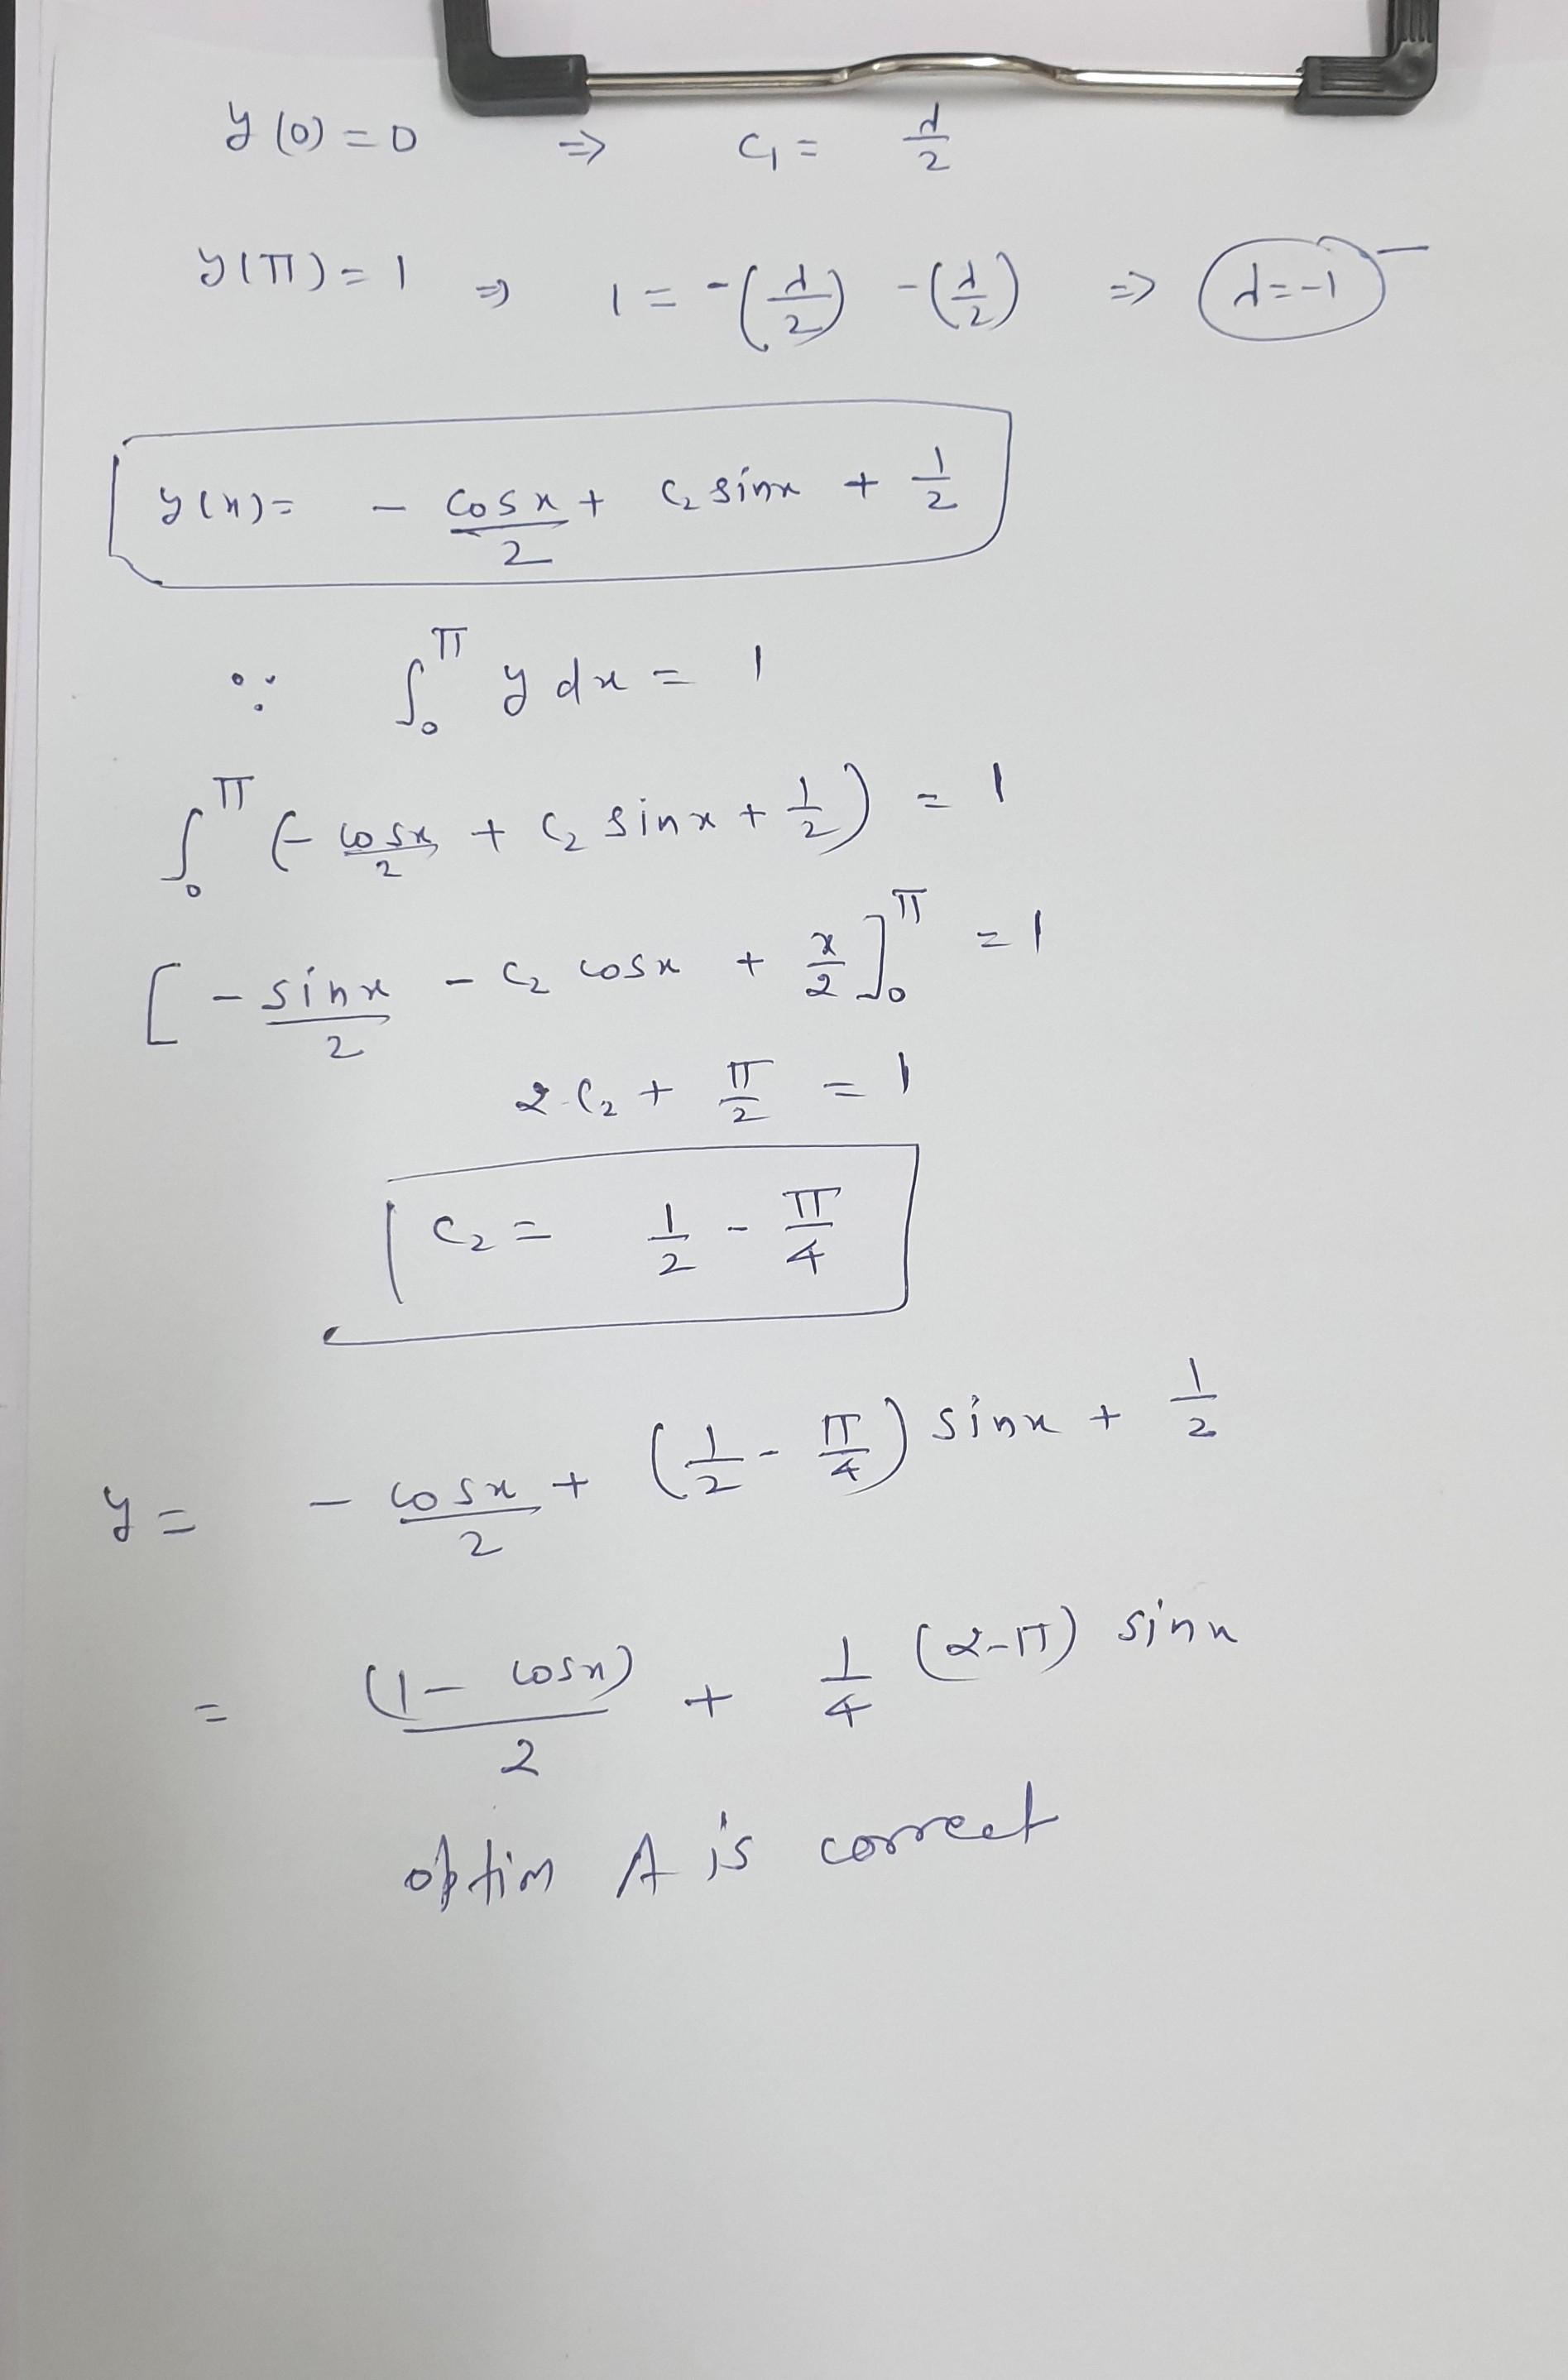 y(0) = 0 ⇒ C₁ = λ/2
y(π) = 1 ⇒ 1 = -(λ/2) - (λ/2) ⇒ λ = -1
y(x) = - cosx/2 + C₂ sinx + 1/2
∵ ∫₀^π y dx = 1
∫₀^π (- cosx/2 + C₂ sinx + 1/2) = 1
[- sinx/2 - C₂ cosx + x/2]₀^π = 1
2C₂ + π/2 = 1
C₂ = 1/2 - π/4
y = - cosx/2 + (1/2 - π/4) sinx + 1/2
= (1 - cosx)/2 + 1/4 (2-π) sinx
option A is correct